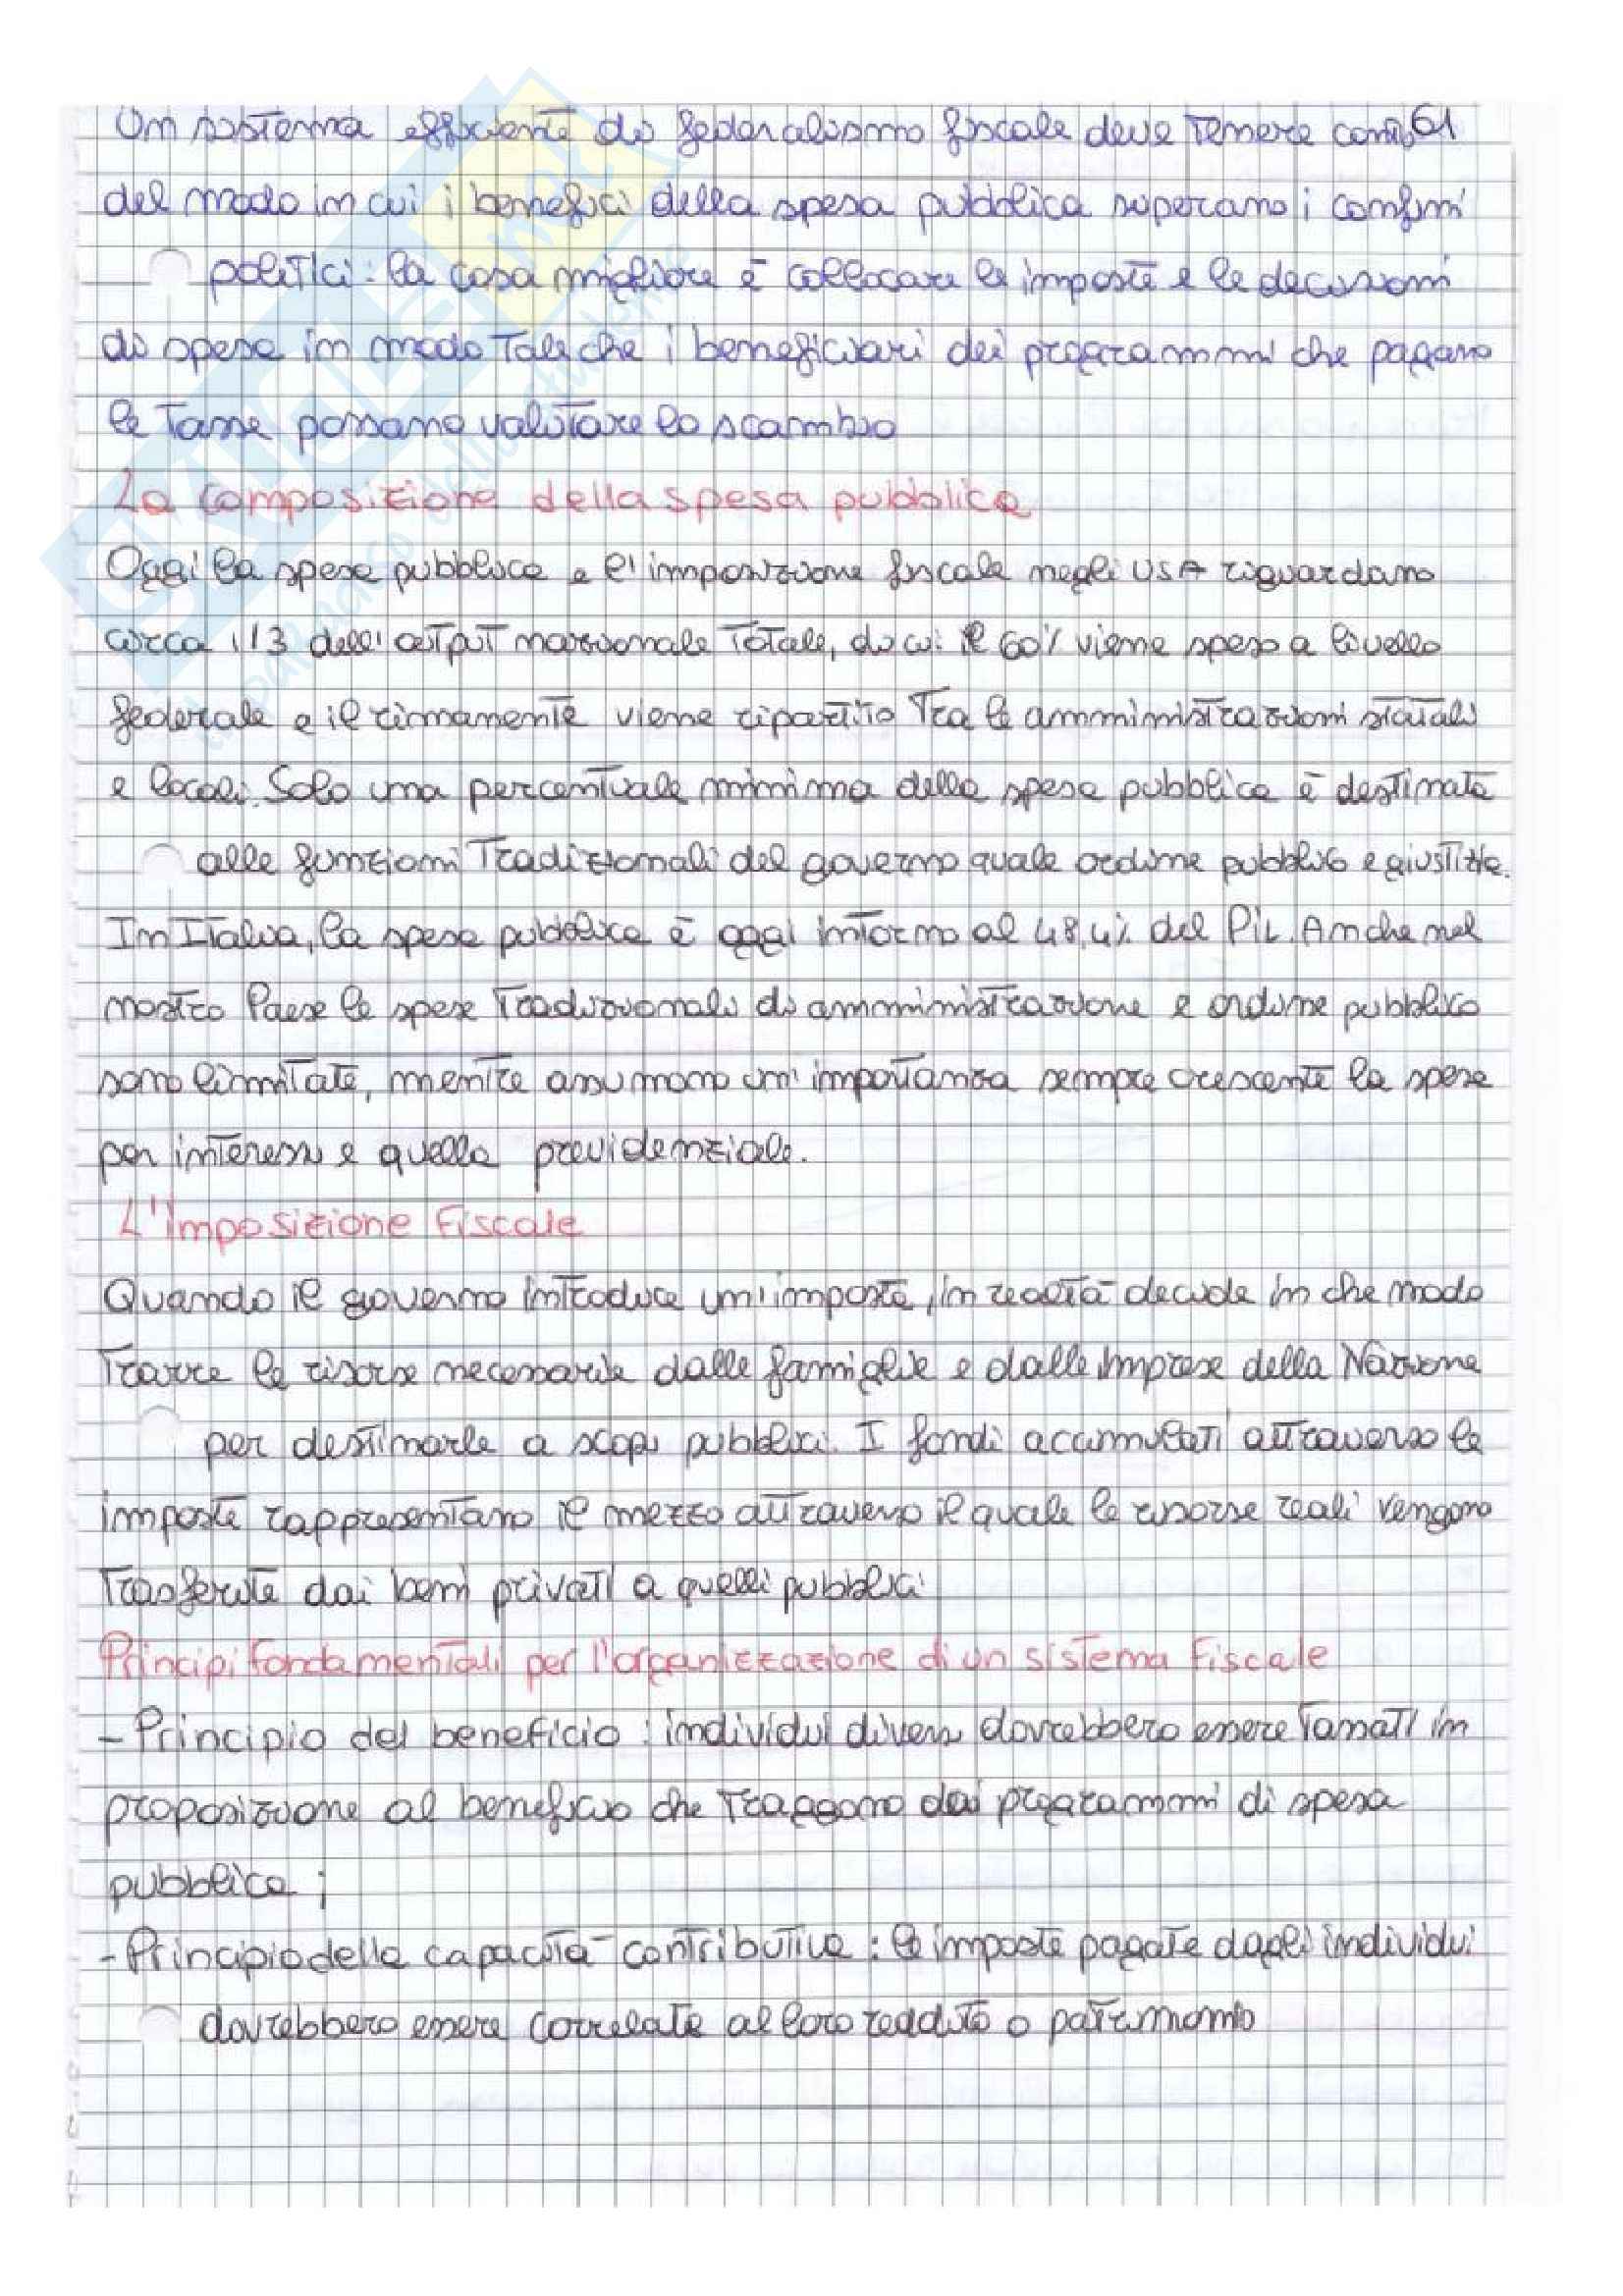 Un sistema efficiente di federalismo fiscale deve tenere conto 61
del modo in cui i benefici della spesa pubblica superano i confini
politici: la cosa migliore è collocare le imposte e le decisioni
di spesa in modo tale che i beneficiari dei programmi che pagano
le tasse possano valutare lo scambio
La composizione della spesa pubblica
Oggi la spesa pubblica e l'imposizione fiscale negli USA riguardano
circa 1/3 dell'output nazionale totale, di cui il 60% viene speso a livello
federale e il rimanente viene ripartito tra le amministrazioni statali
e locali. Solo una percentuale minima della spesa pubblica è destinata
alle funzioni tradizionali del governo quale ordine pubblico e giustizia.
In Italia, la spesa pubblica è oggi intorno al 48,4% del PIL. Anche nel
nostro Paese le spese tradizionali di amministrazione e ordine pubblico
sono limitate, mentre assumono un'importanza sempre crescente la spesa
per interessi e quella previdenziale.
L'imposizione fiscale
Quando il governo introduce un'imposta, in realtà decide in che modo
trarre le risorse necessarie dalle famiglie e dalle imprese della Nazione
per destinarle a scopi pubblici. I fondi accumulati attraverso le
imposte rappresentano il mezzo attraverso il quale le risorse reali vengono
trasferite dai beni privati a quelli pubblici
Principi fondamentali per l'organizzazione di un sistema fiscale
- Principio del beneficio: individui diversi dovrebbero essere tassati in
proposizione al beneficio che traggono dai programmi di spesa
pubblica;
- Principio della capacità contributiva: le imposte pagate dagli individui
dovrebbero essere correlate al loro reddito o patrimonio
SKUOLA.net
il paradiso dello studente